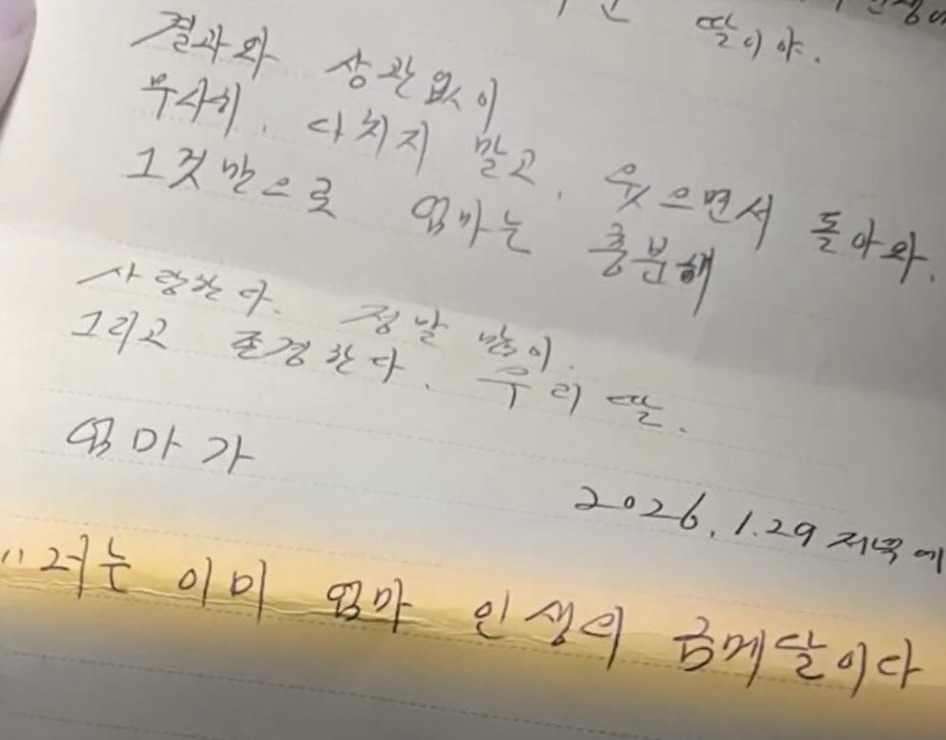 딸이야.
결과와 상관없이
무사히, 다치지 말고, 웃으면서 돌아와.
그것만으로 엄마는 충분해
사랑한다. 정말 많이.
그리고 존경한다. 우리 딸.
엄마가
2026.1.29 저녁에
"너는 이미 엄마 인생의 금메달이다